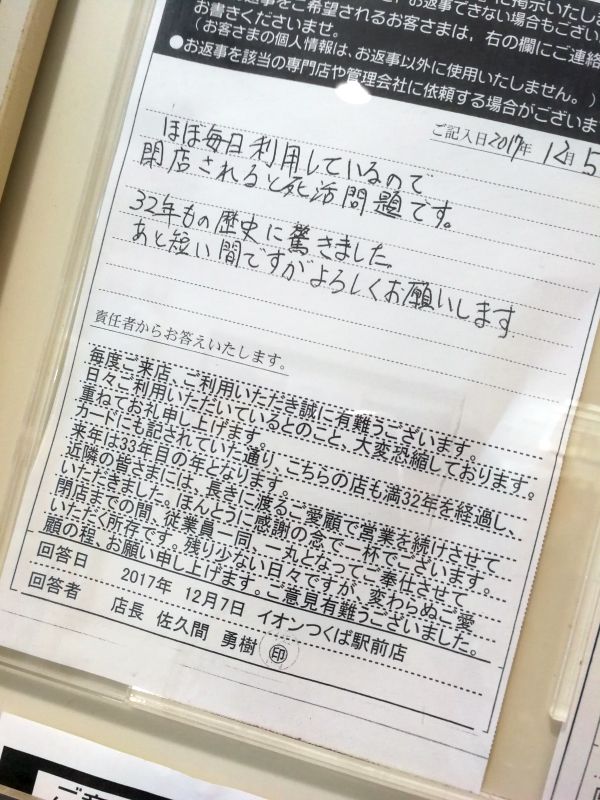 に掲示いたしま
返事をご希望されるお客さまは、右の欄にご連絡
お書きくださいませ。
(お客さまの個人情報は、お返事以外に使用いたしません。)
●お返事を該当の専門店や管理会社に依頼する場合がございま
ご記入日2017年 12月 5
ほぼ毎日利用しているので
閉店されると死活問題です。
32年もの歴史に驚きました。
あと短い間ですがよろしくお願いします
責任者からお答えいたします。
毎度ご来店、ご利用いただき誠に有難うございます。
日々ご利用いただいているとのこと、大変恐縮しております。
重ねてお礼申し上げます。
カードにも記されていた通り、こちらの店も満32年を経過し、
来年は33年目の年となります。
近隣の皆さまには、長きに渡るご愛顧で営業を続けさせて
いただきました。ほんとうに感謝の念で一杯でございます。
閉店までの間、従業員一同、一丸となってご奉仕させて
いただく所存です。残り少ない日々ですが、変わらぬご愛
顧の程、お願い申し上げます。ご意見有難うございました。
回答日 2017年 12月7日 イオンつくば駅前店
回答者 店長 佐久間 勇樹 印